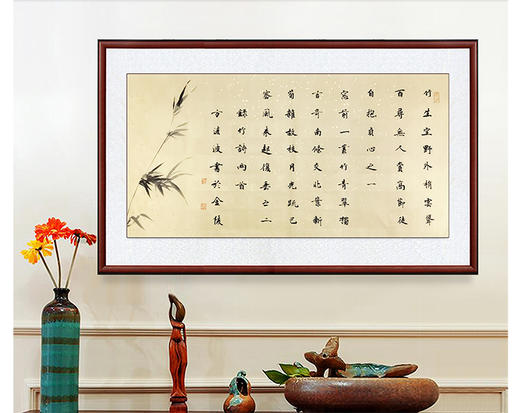 竹生空野外梢雲聳
百尋無人賞高節徒
自抱貞心之一
窗前一叢竹青翠獨
言奇南條交北葉新
筍雜故枝月光疏已
密風来起復垂之二
錄竹詩兩首
方波波書於金陵